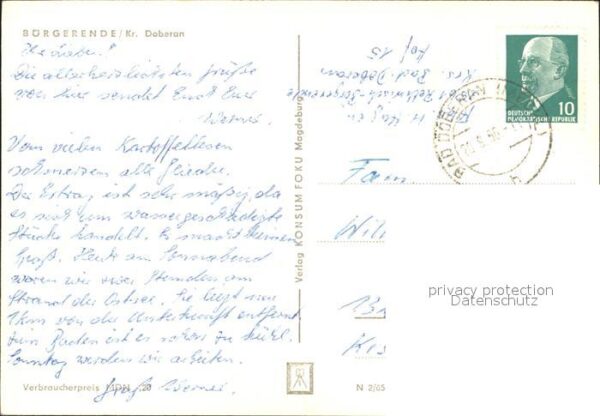 BÖRGERENDE/Kr. Doberan
Ihr Lieben!
Die allerherzlichsten Grüße
von hier sendet Euch Euer
Werner.
Vom vielen Kartoffellesen
schmerzen alle Glieder.
Der Ertrag ist sehr mäßig, da
es sich um wassergeschädigte
Stücke handelt. Es macht keinen
Spaß. Heute am Sonnabend
waren wir vier Stunden am
Strand der Ostsee. Sie liegt nur
1km von der Unterkunft entfernt.
Zum Baden ist es schon zu kühl.
Sonntag werden wir arbeiten.
Gruß Werner
Verbraucherpreis MDN -,20
Verlag KONSUM FOKU Magdeburg
N 2/65
Krs. Bad Doberan
Hof 15
Fam
Wil
Kr
10
DEUTSCHE
DEMOKRATISCHE REPUBLIK
BAD DOBERAN
privacy protection
Datenschutz